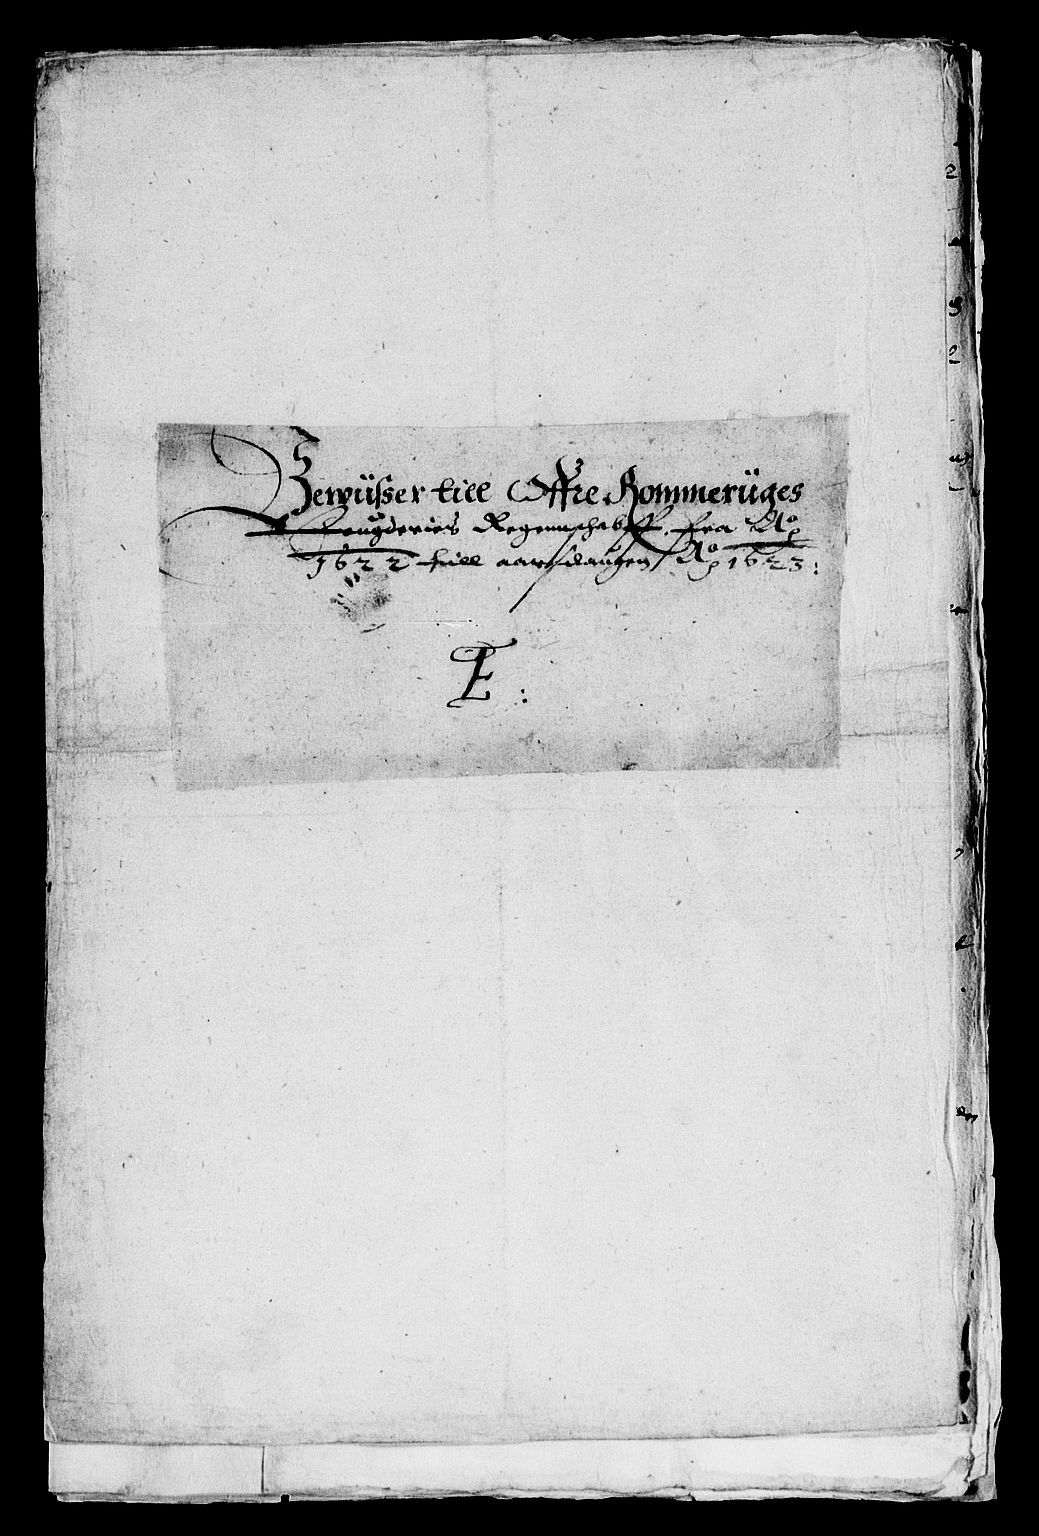 Bewüsser till Øffre Rommeriiges
Fougderies Regennschabff fra Ao
1622 till aarsdaugen Ao 1623:
E: